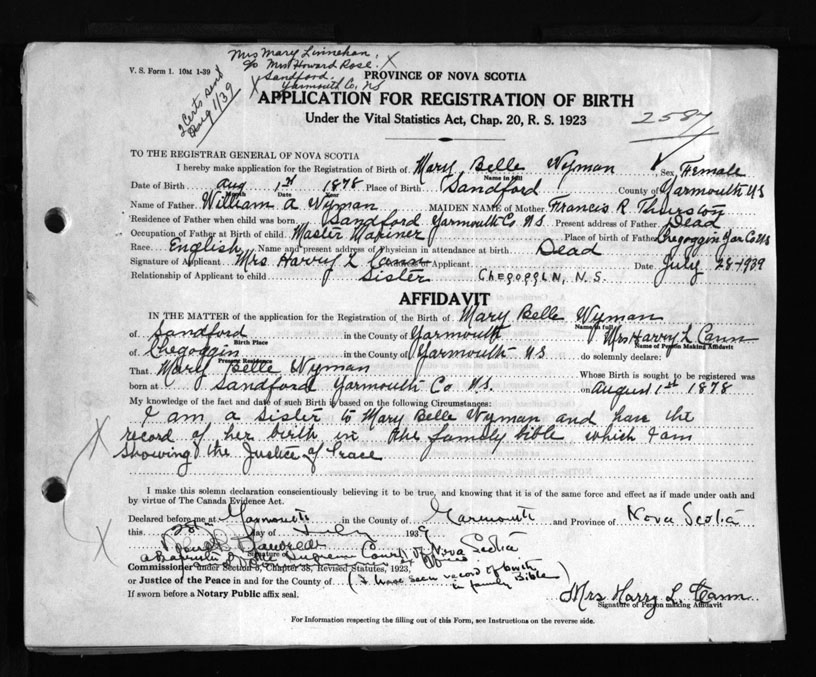 V. S. Form 1. 10M 1-39
Mrs Mary Linnehan.
c/o Mrs Howard Rose. X
X Sandford.
Yarmouth Co, NS
2 Certs send
Aug 1/39
PROVINCE OF NOVA SCOTIA
APPLICATION FOR REGISTRATION OF BIRTH
Under the Vital Statistics Act, Chap. 20, R. S. 1923
2587
TO THE REGISTRAR GENERAL OF NOVA SCOTIA
I hereby make application for the Registration of Birth of Mary Belle Wyman Sex Female
Name in full
Date of Birth Aug 1st 1878 Place of Birth Sandford County of Yarmouth NS
Month Date Year
Name of Father William A Wyman MAIDEN NAME of Mother Francis R Thurston
Residence of Father when child was born Sandford Yarmouth Co NS Present address of Father Dead
Occupation of Father at Birth of child Master Mariner Place of birth of Father Chegoggin Yar Co NS
Race English Name and present address of Physician in attendance at birth Dead
Signature of Applicant Mrs Harry L Cann of Applicant Date July 28-1939
Relationship of Applicant to child Sister Chegoggin, N.S.
AFFIDAVIT
IN THE MATTER of the application for the Registration of the Birth of Mary Belle Wyman
Name in full
of Sandford in the County of Yarmouth Mrs Harry L Cann
Birth Place Name of Person Making Affidavit
of Chegoggin in the County of Yarmouth NS do solemnly declare:
Present Residence
That Mary Belle Wyman Whose Birth is sought to be registered was
born at Sandford Yarmouth Co NS. on August 1st 1878
My knowledge of the fact and date of such Birth is based on the following Circumstances:
I am a sister to Mary Belle Wyman and have the
record of her birth in the family bible which I am
showing the Justice of Peace
X
X
I make this solemn declaration conscientiously believing it to be true, and knowing that it is of the same force and effect as if made under oath and
by virtue of The Canada Evidence Act.
Declared before me at Yarmouth in the County of Yarmouth and Province of Nova Scotia
this 28 day of July 1939
Signature of
a Barrister of the Supreme Court of Nova Scotia
Commissioner under Section 5, Chapter 38, Revised Statutes, 1923,
or Justice of the Peace in and for the County of (I have seen record of birth
in family Bible)
If sworn before a Notary Public affix seal.
Mrs Harry L. Cann
Signature of Person making Affidavit
For Information respecting the filling out of this Form, see Instructions on the reverse side.